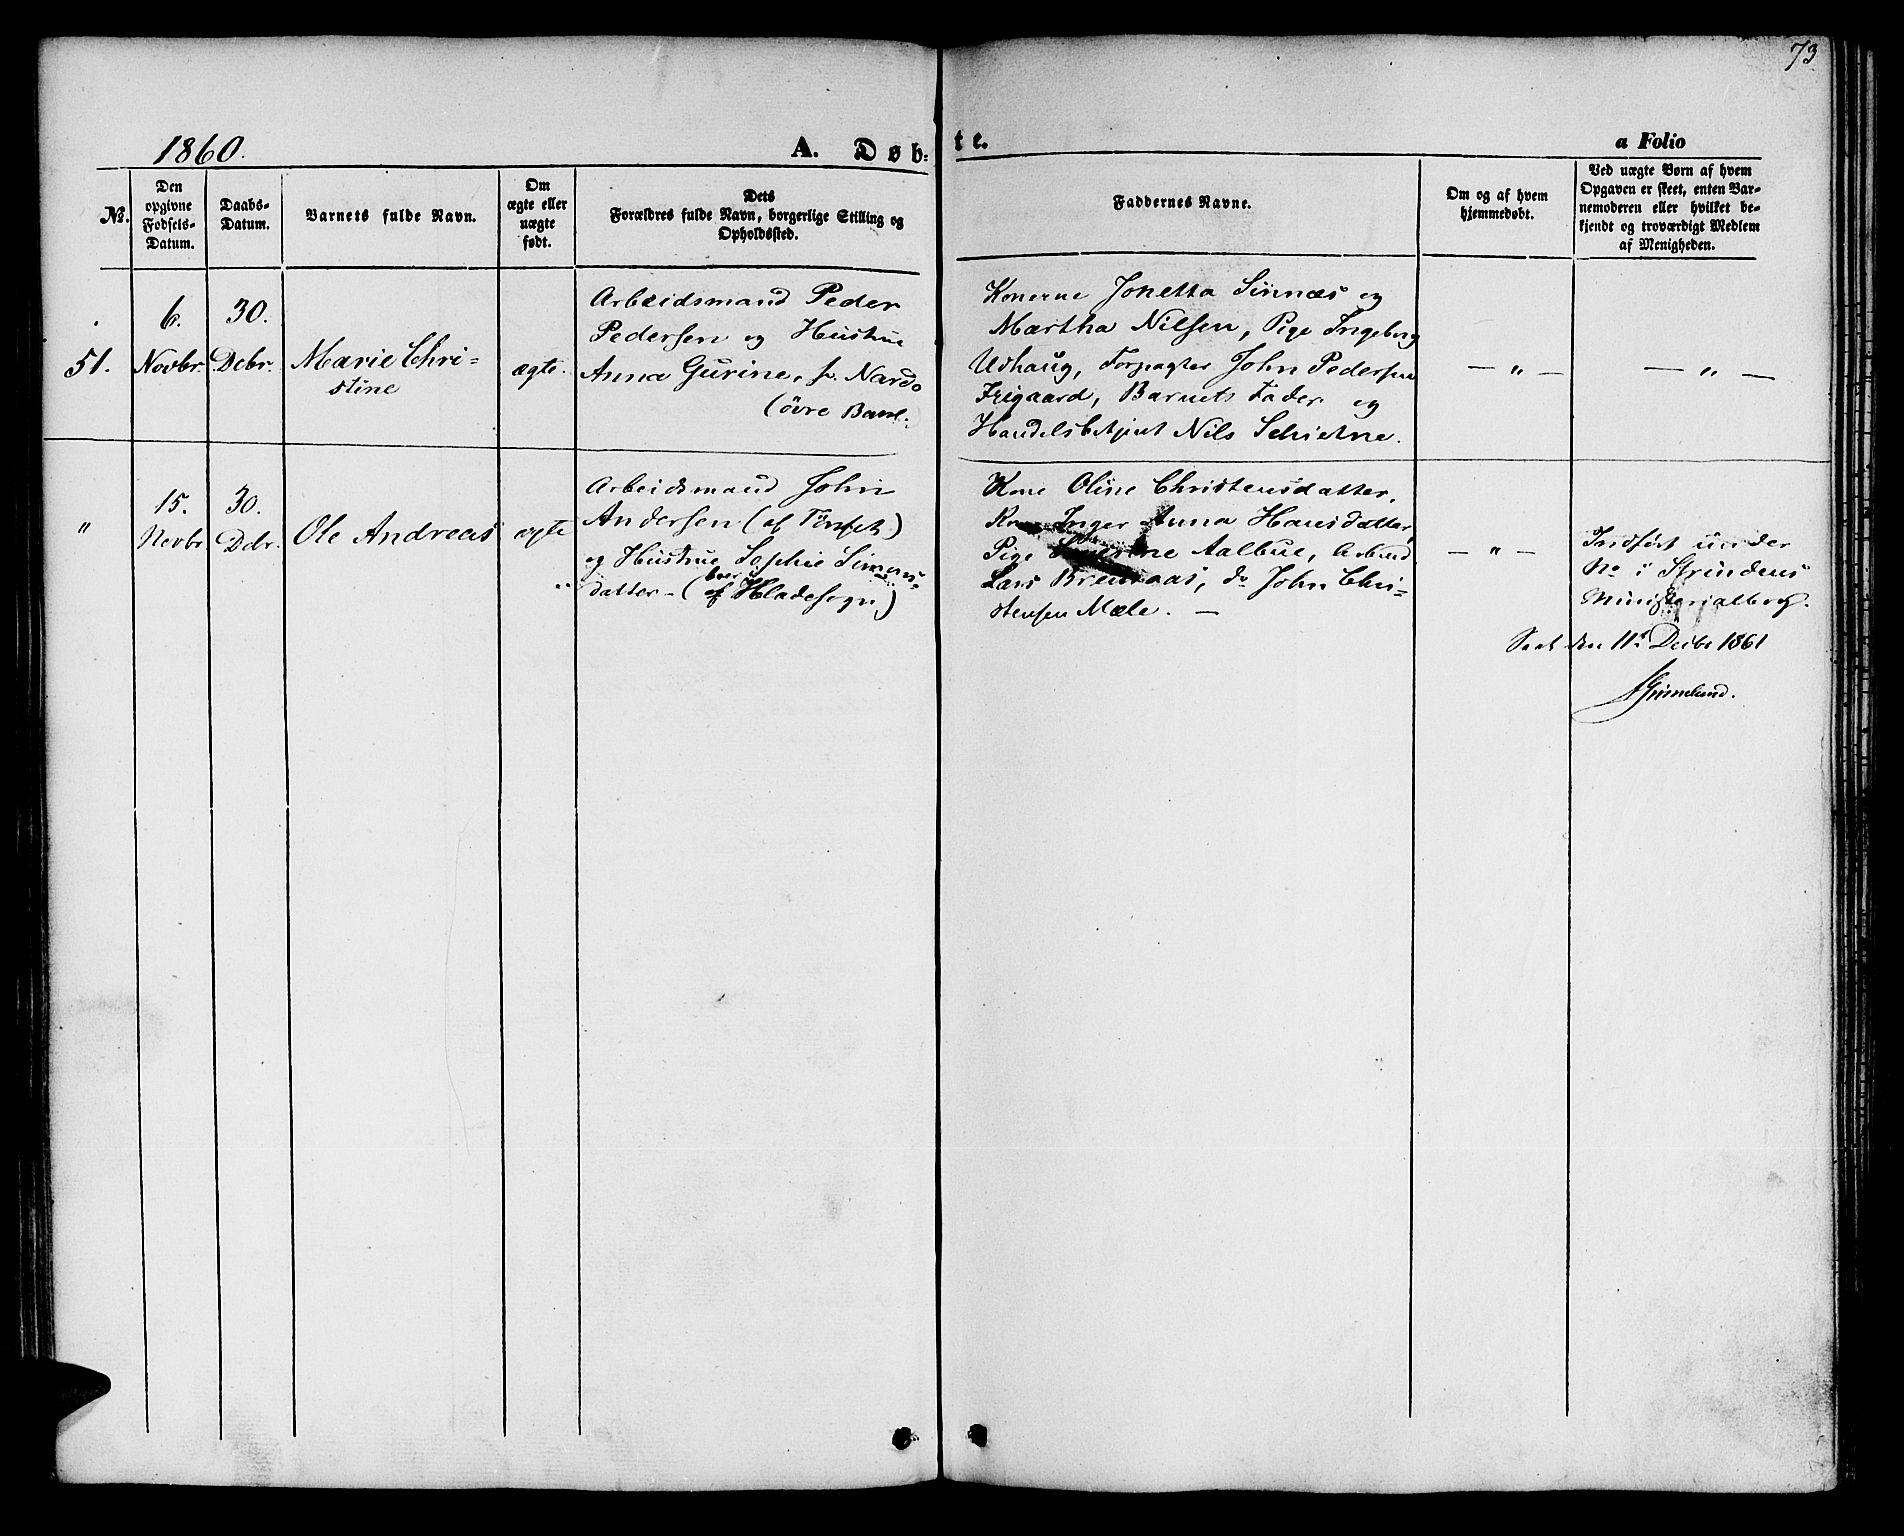 73
1860.
A. Døb:
te.
a Folio
No.
Den
opgivne
Fødsels-
Datum.
Daabs-
Datum.
Barnets fulde Navn.
Om
ægte eller
uægte
født.
Dets
Forældres fulde Navn, borgerlige Stilling og
Opholdssted.
Faddernes Navne.
Om og af hvem
hjemmedøbt.
Ved uægte Børn af hvem
Opgaven er skeet, enten Bar-
nemoderen eller hvilket be-
kjendt og troværdigt Medlem
af Menigheden.
51.
6.
Novbr.
30.
Debr.
Marie Chri-
stine
ægte.
Arbeidsmand Peder
Pedersen og Hustrue
Anna Gurine, f. Nardo
(övre Bakl.
Konerne Jonetta Sinnæs og
Martha Nilsen, Pige Ingeborg
Udhaug, Forpagter John Pedersen
Frigaard, Barnets Fader og
Handelsbetjent Nils Schietne.
— " —
— " —
"
15.
Novbr
30.
Debr.
Ole Andreas
ægte
Arbeidsmand John
Andersen (af Tönset)
og Hustrue Sophie Simons-
datter - (boer
af Hladesogn)
Kone Oline Christensdatter,
Kone Inger Anna Hansdatter,
Pige Aalbue, Arbmd
Lars Brennaas, do John Chri-
stensen Mæle. —
— " —
Indfört under
No i Strindens
Ministerialbog.
den 11te Decbr 1861
Grimelund.